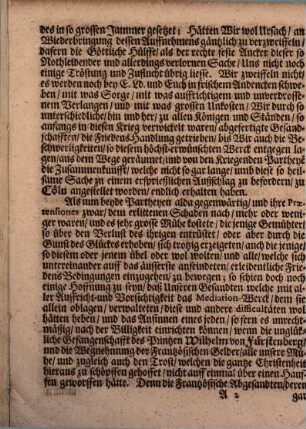 des in so grossen Jammer gesetzet; Hätten Wir wol Ursach/ an
Wiederbringung dessen Auffnehmens gäntzlich zu verzweiffeln/
dafern die Göttliche Hülffe/ als der rechte feste Ancker dieser so
Nothleidender und allerdings verlornen Sache/ Uns nicht noch
einige Tröstung und Zuflucht übrig liesse. Wir zweiffeln nicht/
es werden noch bey E. Ld. und Euch in frischem Andencken schwe-
ben/ mit was Sorge/ mit was auffrichtigem und unverdrosse-
nem Verlangen/ und mit was grossen Unkosten/ Wir durch so
unterschiedliche/ hin und her/ zu allen Königen und Ständen/ so
anfangs in diesen Krieg verwickelt waren/ abgefertigte Gesand-
schafften/ die Friedens Handlung getrieben/ bis Wir auch die Be-
schwerligkeiten/ so diesem höchst-erwünschten Werck entgegen la-
gen/ aus dem Wege geräumet/ und von den Kriegenden Partheyen
die Zusammenkunfft/ welche nicht so gar lange/ umb diese so heil-
same Sache zu einem ersprießlichen Außschlag zu befordern/ zu
Cöln angestellet worden/ endlich erhalten haben.
Als nun beyde Partheyen alda gegenwärtig/ und ihre Præ-
tensiones zwar/ dem erlittenen Schaden nach/ mehr oder weni-
ger waren/ und es sehr grosse Mühe kostete/ die jenige Gemühter/
so über den Verlust des ihrigen entrüstet/ oder aber durch die
Gunst des Glückes erhoben/ sich trotzig erzeigeten/ auch die jenige/
so diesem oder jenem übel oder wol wolten/ und alle/ welche sich
untereinander auff das äusserste anfeindeten/ erleidentliche Frie-
dens Bedingungen einzugehen/ zu bewegen; so schien doch noch
einige Hoffnung zu seyn/ daß Unsere Gesandten welche mit al-
ler Auffricht- und Vorsichtigkeit das Mediation-Werck/ dem sie
allein oblagen/ verwalteten/ diese und andere difficultäten wol
hätten heben/ und das Ansinnen eines jeden/ so fern es unrecht-
mäßig/ nach der Billigkeit einrichten können/ wenn die unglück-
liche Gefangenschafft des Printzen Wilhelms von Fürstenberg/
und die Wegnehmung der Frantzösischen Gelder/ alle unsere Mü-
he/ und zugleich auch den Trost/ welchen die gantze Christenheit
hieraus zu schöpffen gehoffet/ nicht auff einmal über einen Hauf-
fen geworffen hätte. Denn die Frantzösische Abgesandten/ deren
A 2 gar